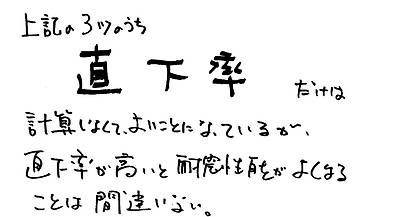 上記の3つのうち
直下率 だけは
計算しなくて、よいことになっているが、
直下率が高いと耐震性能がよくなる
ことは間違いない。